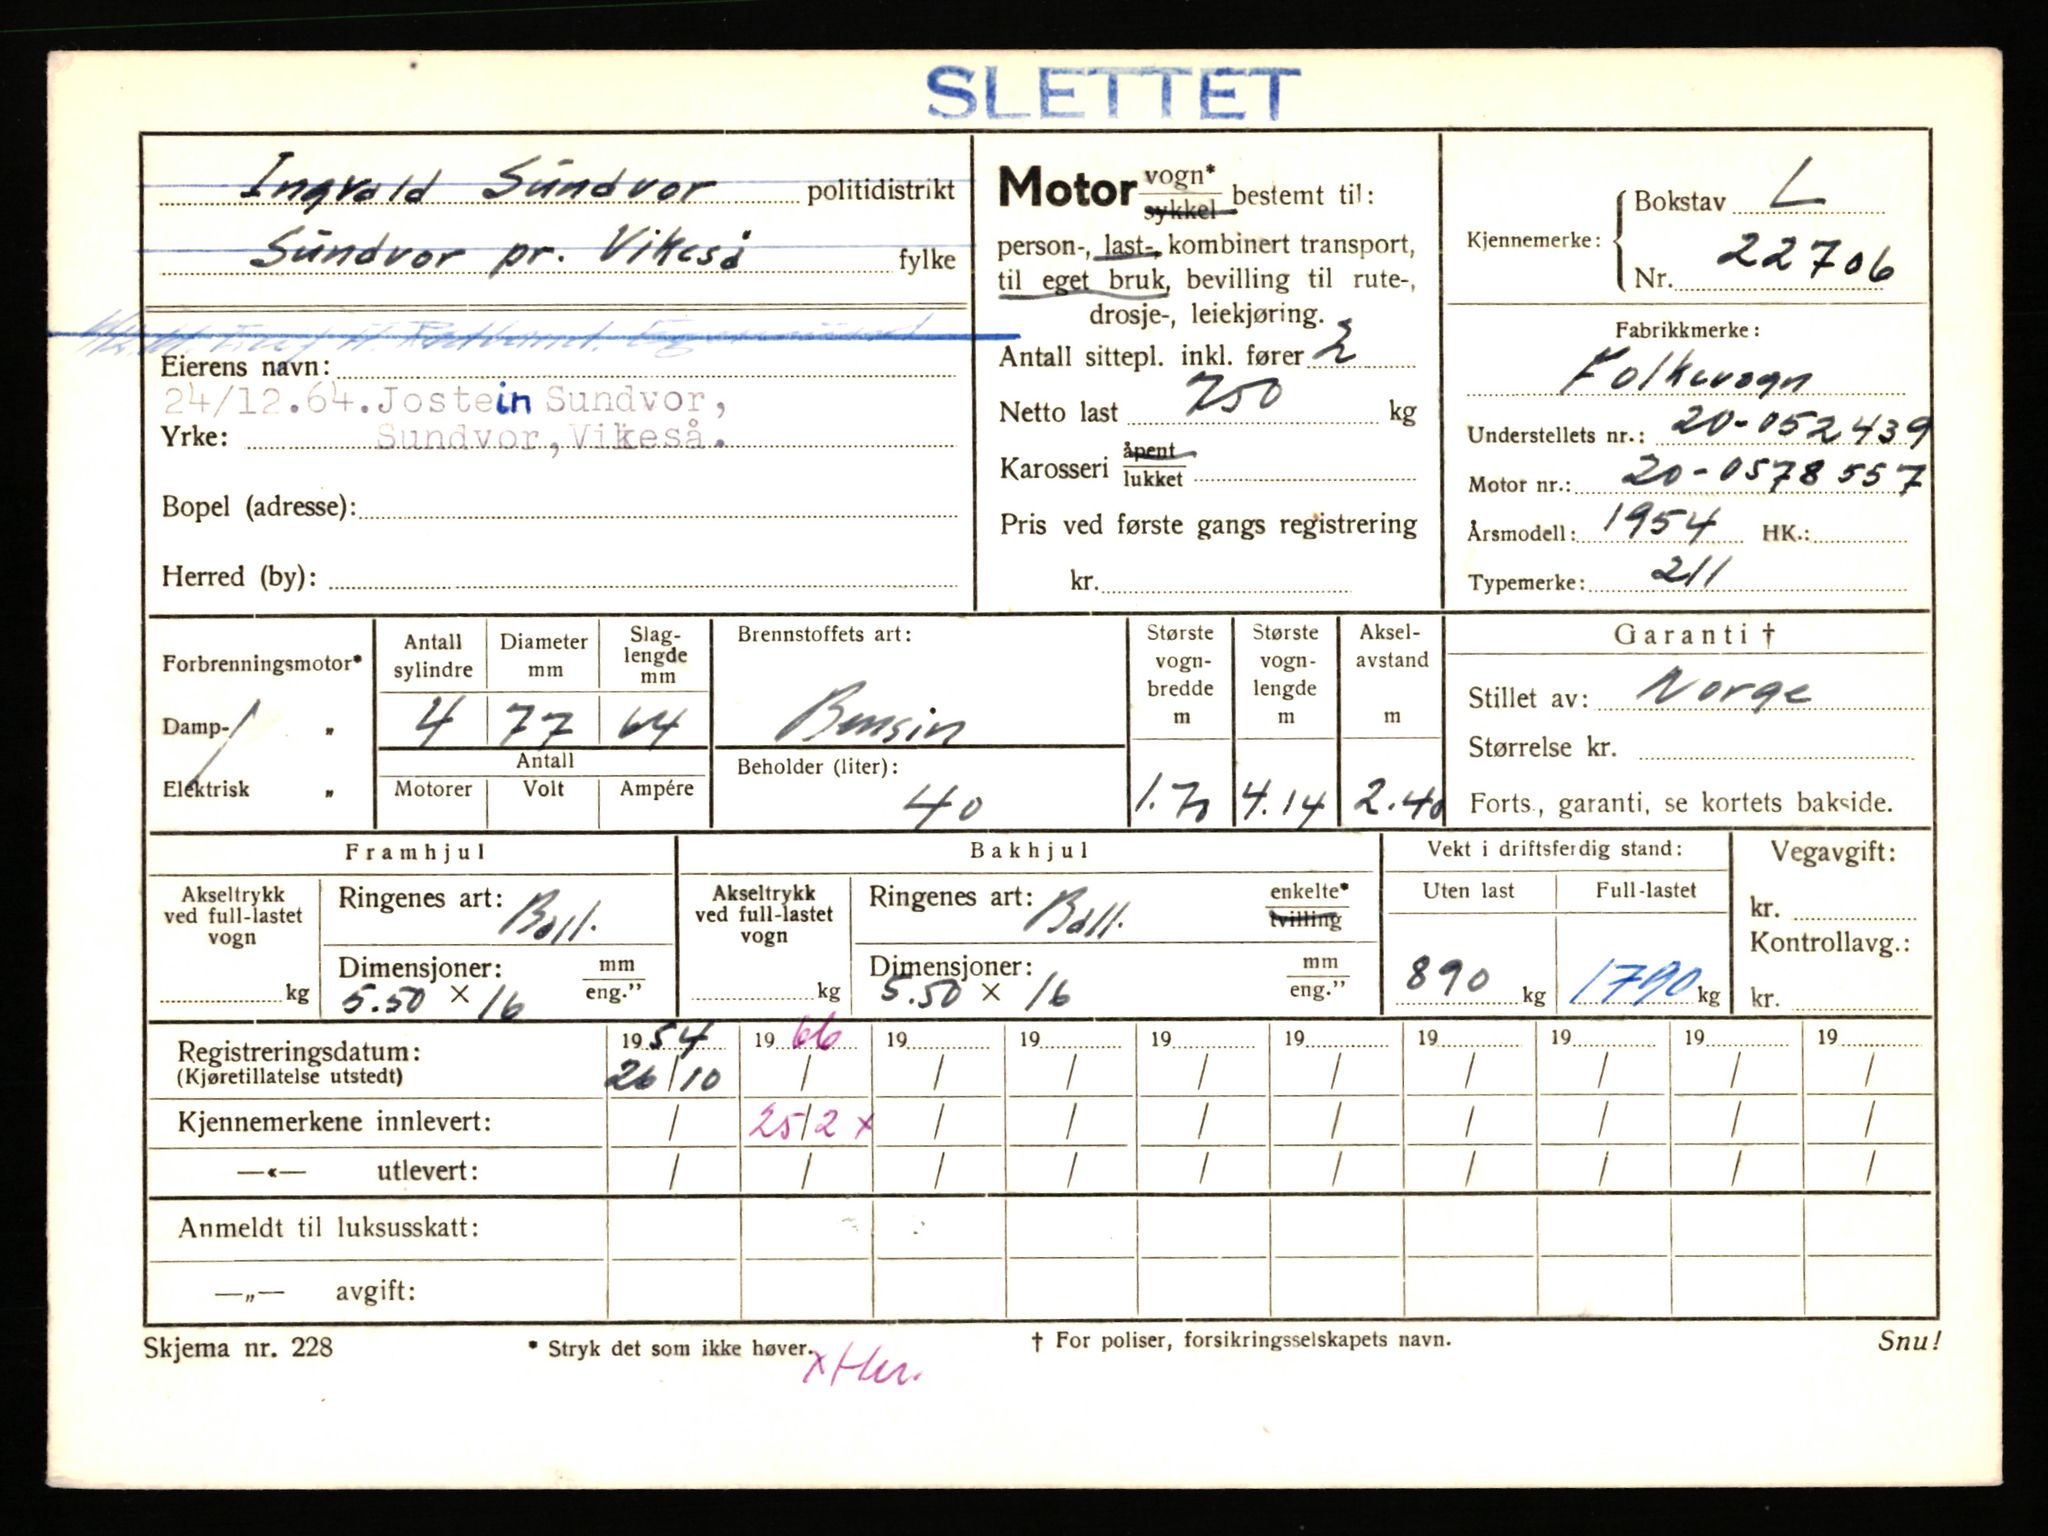 SLETTET
Ingvald Sundvor politidistrikt
Sundvor pr. Vikeså fylke
Eierens navn:
24/12.64. Jostein Sundvor,
Yrke: Sundvor, Vikeså.
Bopel (adresse):
Herred (by):
Motor vogn* sykkel bestemt til:
person-, last-, kombinert transport,
til eget bruk, bevilling til rute-,
drosje-, leiekjøring.
Antall sittepl. inkl. fører 2
Netto last 750 kg
Karosseri åpent lukket
Pris ved første gangs registrering
kr.
Kjennemerke: Bokstav L
Nr. 22706
Fabrikkmerke:
Folkevogn
Understellets nr.: 20-052439
Motor nr.: 20-0578557
Årsmodell: 1954 HK.:
Typemerke: 211
Forbrenningsmotor*
Damp- „
Elektrisk „
Antall sylindre
Diameter mm
Slag-lengde mm
4 77 64
Antall
Motorer Volt Ampére
Brennstoffets art:
Bensin
Beholder (liter):
40
Største vogn-bredde m
Største vogn-lengde m
Aksel-avstand m
1.70 4.14 2.40
Garanti †
Stillet av: Norge
Størrelse kr.
Forts., garanti, se kortets bakside.
Framhjul
Akseltrykk ved full-lastet vogn
kg
Ringenes art: Ball.
Dimensjoner: mm eng."
5.50 × 16
Bakhjul
Akseltrykk ved full-lastet vogn
kg
Ringenes art: Ball. enkelte* tvilling
Dimensjoner: mm eng."
5.50 × 16
Vekt i driftsferdig stand:
Uten last Full-lastet
890 kg 1790 kg
Vegavgift:
kr.
Kontrollavg.:
kr.
Registreringsdatum: 1954 1966 19 19 19 19 19 19 19 19
(Kjøretillatelse utstedt) 26/10 / / / / / / / / /
Kjennemerkene innlevert: / 25/2 x / / / / / / / /
—«— utlevert: / / / / / / / / / /
Anmeldt til luksusskatt:
—„— avgift:
Skjema nr. 228 * Stryk det som ikke høver. † For poliser, forsikringsselskapets navn. Snu!